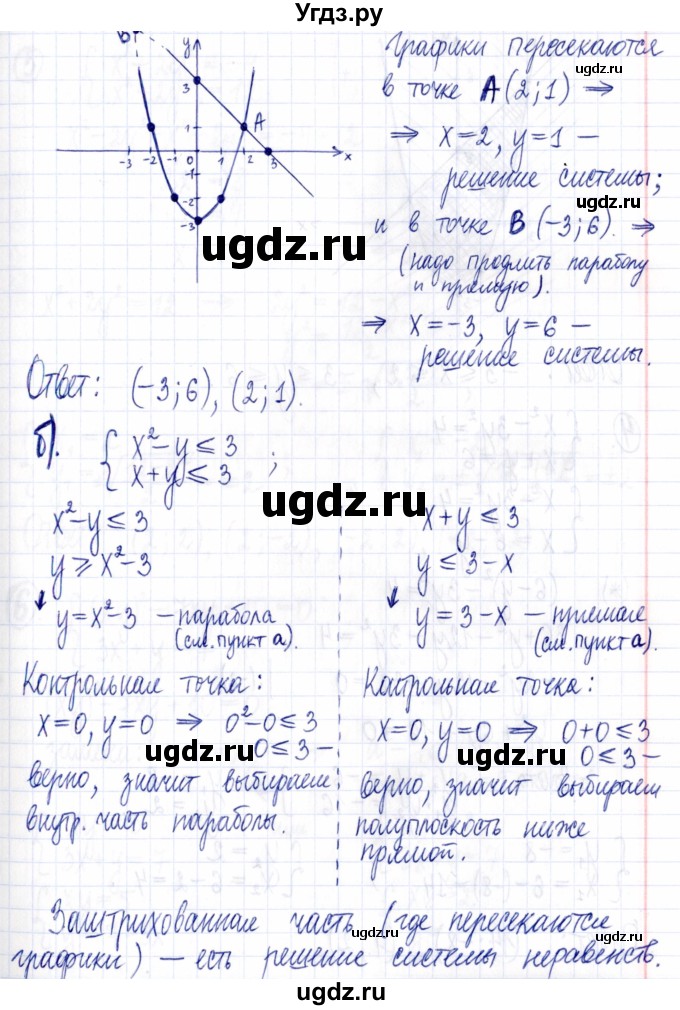 Угдз.ру
Графики пересекаются
в точке A(2;1) ⇒
⇒ x=2, y=1 –
решение системы;
и в точке B(-3;6). ⇒
(надо продлить параболу
и прямую).
⇒ x=-3, y=6 –
решение системы.
B
y
3
A
1
-3 -2 -1 1 2 3 x
-1
-2
-3
ugdz.ru
Ответ: (-3;6), (2;1).
б). { x²-y≤3
x+y≤3 ;
x²-y≤3
y≥x²-3
↓ y=x²-3 – парабола
(см. пункт а).
Контрольная точка:
x=0, y=0 ⇒ 0²-0≤3
0≤3 –
верно, значит выбираем
внутр. часть параболы.
x+y≤3
y≤3-x
↓ y=3-x – прямая
(см. пункт а).
Контрольная точка:
x=0, y=0 ⇒ 0+0≤3
0≤3 –
верно, значит выбираем
полуплоскость ниже
прямой.
Заштрихованная часть (где пересекаются
графики) – есть решение системы неравенств.
ugdz.ru